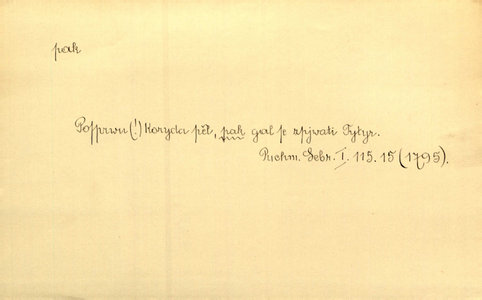 pak
Posprwu (!) Koryda pěl, pak gal se zpjvati Tytyr.
Puchm. Sebr. I. 115. 15 (1795).